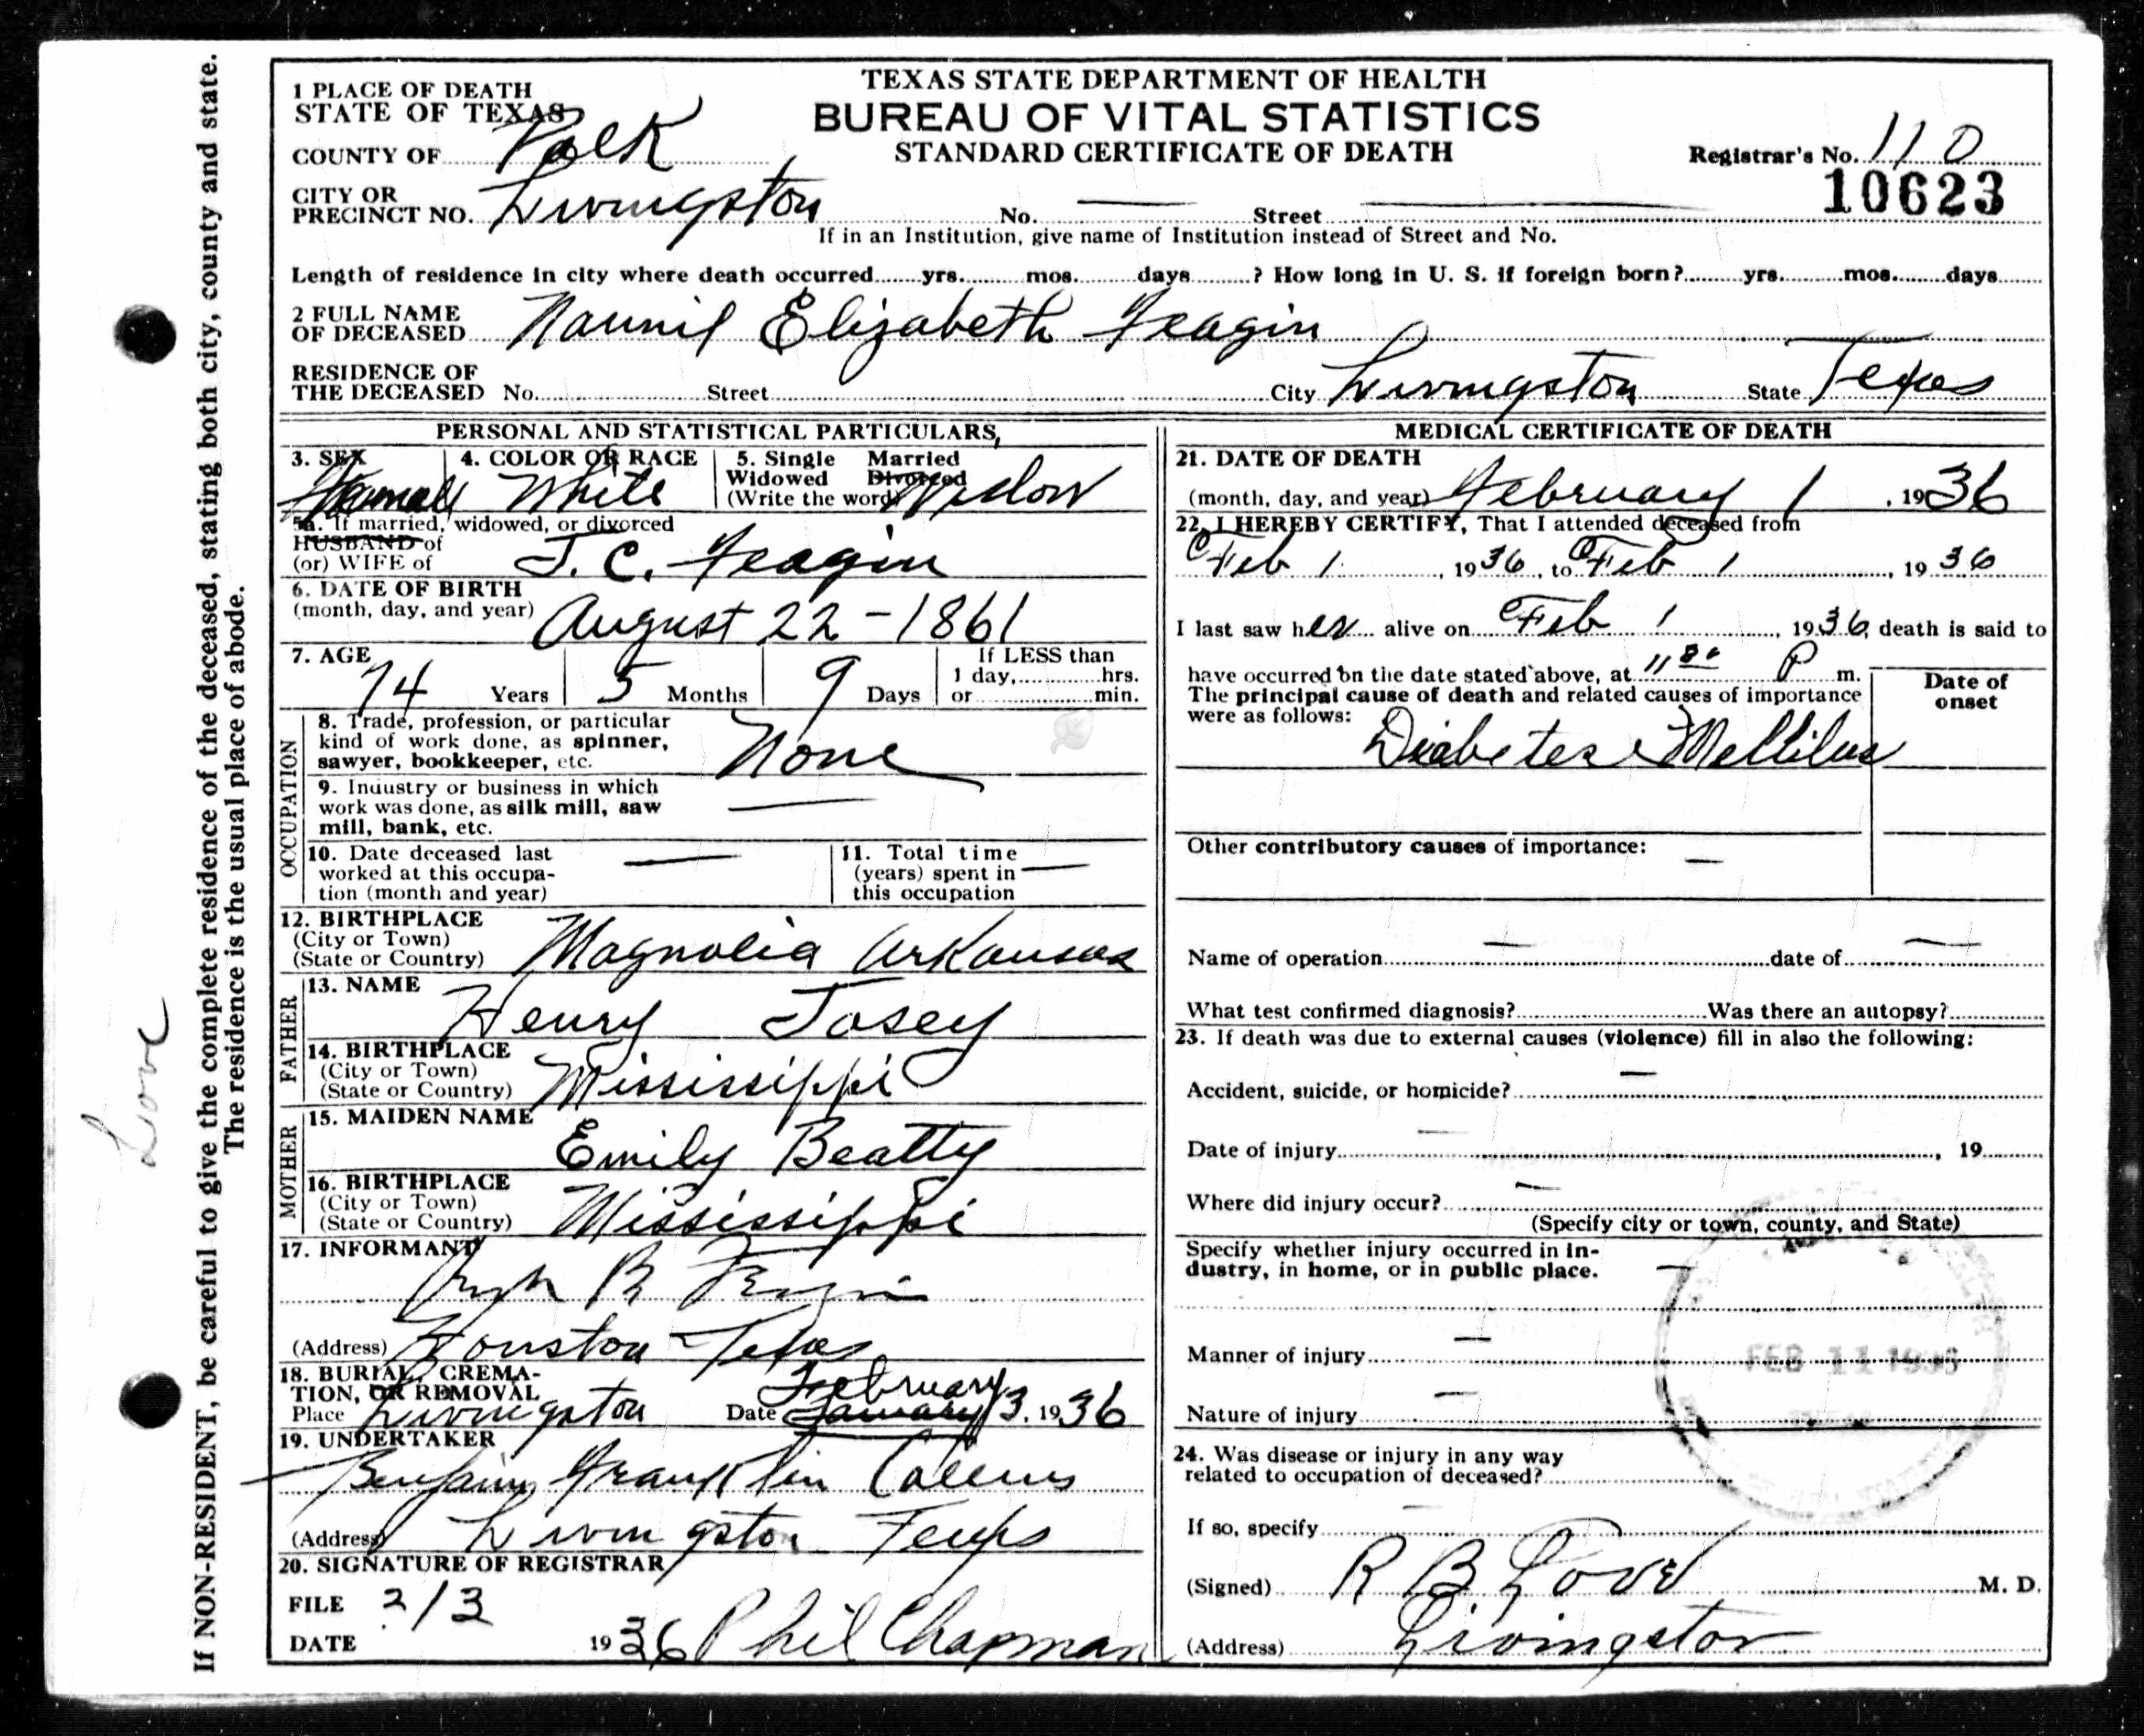 TEXAS STATE DEPARTMENT OF HEALTH
BUREAU OF VITAL STATISTICS
STANDARD CERTIFICATE OF DEATH
1 PLACE OF DEATH
STATE OF TEXAS
COUNTY OF Polk
Registrar's No. 110
10623
CITY OR
PRECINCT NO. Livingston No. — Street —
If in an Institution, give name of Institution instead of Street and No.
Length of residence in city where death occurred yrs. mos. days ? How long in U. S. if foreign born? yrs. mos. days
2 FULL NAME
OF DECEASED Nannie Elizabeth Feagin
RESIDENCE OF
THE DECEASED No. Street City Livingston State Texas
PERSONAL AND STATISTICAL PARTICULARS
3. SEX Female
4. COLOR OR RACE White
5. Single Married
Widowed Divorced
(Write the word) Widow
5a. If married, widowed, or divorced
HUSBAND of
(or) WIFE of J. C. Feagin
6. DATE OF BIRTH
(month, day, and year) August 22 - 1861
7. AGE
74 Years 5 Months 9 Days
If LESS than
1 day, hrs.
or min.
OCCUPATION
8. Trade, profession, or particular
kind of work done, as spinner,
sawyer, bookkeeper, etc. None
9. Industry or business in which
work was done, as silk mill, saw
mill, bank, etc. —
10. Date deceased last
worked at this occupa-
tion (month and year) —
11. Total time
(years) spent in
this occupation —
12. BIRTHPLACE
(City or Town)
(State or Country) Magnolia Arkansas
FATHER
13. NAME Henry Josey
14. BIRTHPLACE
(City or Town)
(State or Country) Mississippi
MOTHER
15. MAIDEN NAME Emily Beatty
16. BIRTHPLACE
(City or Town)
(State or Country) Mississippi
17. INFORMANT
R Feagin
(Address) Houston Texas
18. BURIAL, CREMA-
TION, OR REMOVAL
Place Livingston Date February January 3, 1936
19. UNDERTAKER
Benjamin Franklin
(Address) Livingston Texas
20. SIGNATURE OF REGISTRAR
FILE 2/3
DATE 1936 Phil Chapman
MEDICAL CERTIFICATE OF DEATH
21. DATE OF DEATH
(month, day, and year) February 1, 1936
22. I HEREBY CERTIFY, That I attended deceased from
Feb 1, 1936, to Feb 1, 1936
I last saw her alive on Feb 1, 1936, death is said to
have occurred on the date stated above, at 11 30 P m.
The principal cause of death and related causes of importance
were as follows:
Date of
onset
Diabetes Mellitus
Other contributory causes of importance: —
Name of operation — date of —
What test confirmed diagnosis? Was there an autopsy?
23. If death was due to external causes (violence) fill in also the following:
Accident, suicide, or homicide? —
Date of injury — , 19
Where did injury occur? —
(Specify city or town, county, and State)
Specify whether injury occurred in in-
dustry, in home, or in public place. —
Manner of injury —
Nature of injury —
FEB 11 1936
24. Was disease or injury in any way
related to occupation of deceased?
If so, specify —
(Signed) R B Love M. D.
(Address) Livingston
If NON-RESIDENT, be careful to give the complete residence of the deceased, stating both city, county and state.
The residence is the usual place of abode.
Love